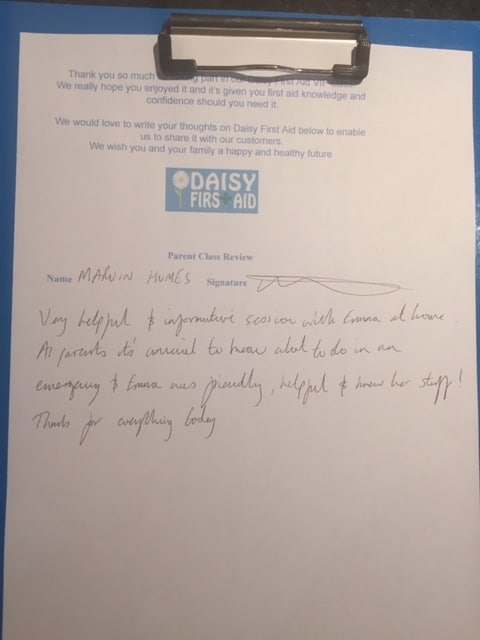 Thank you so much for taking part in our Daisy First Aid VIP class.
We really hope you enjoyed it and it's given you first aid knowledge and
confidence should you need it.
We would love to write your thoughts on Daisy First Aid below to enable
us to share it with our customers.
We wish you and your family a happy and healthy future
DAISY
FIRST AID
Parent Class Review
Name MARVIN HUMES Signature
Very helpful & informative session with Emma at home.
As parents it's crucial to know what to do in an
emergency & Emma was friendly, helpful & knew her stuff!
Thanks for everything today